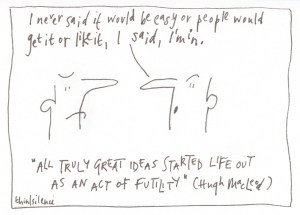 I never said it would be easy or people would
get it or like it, I said, I'm in.
"ALL TRULY GREAT IDEAS STARTED LIFE OUT
AS AN ACT OF FUTILITY" (Hugh MacLeod)
thinksilence